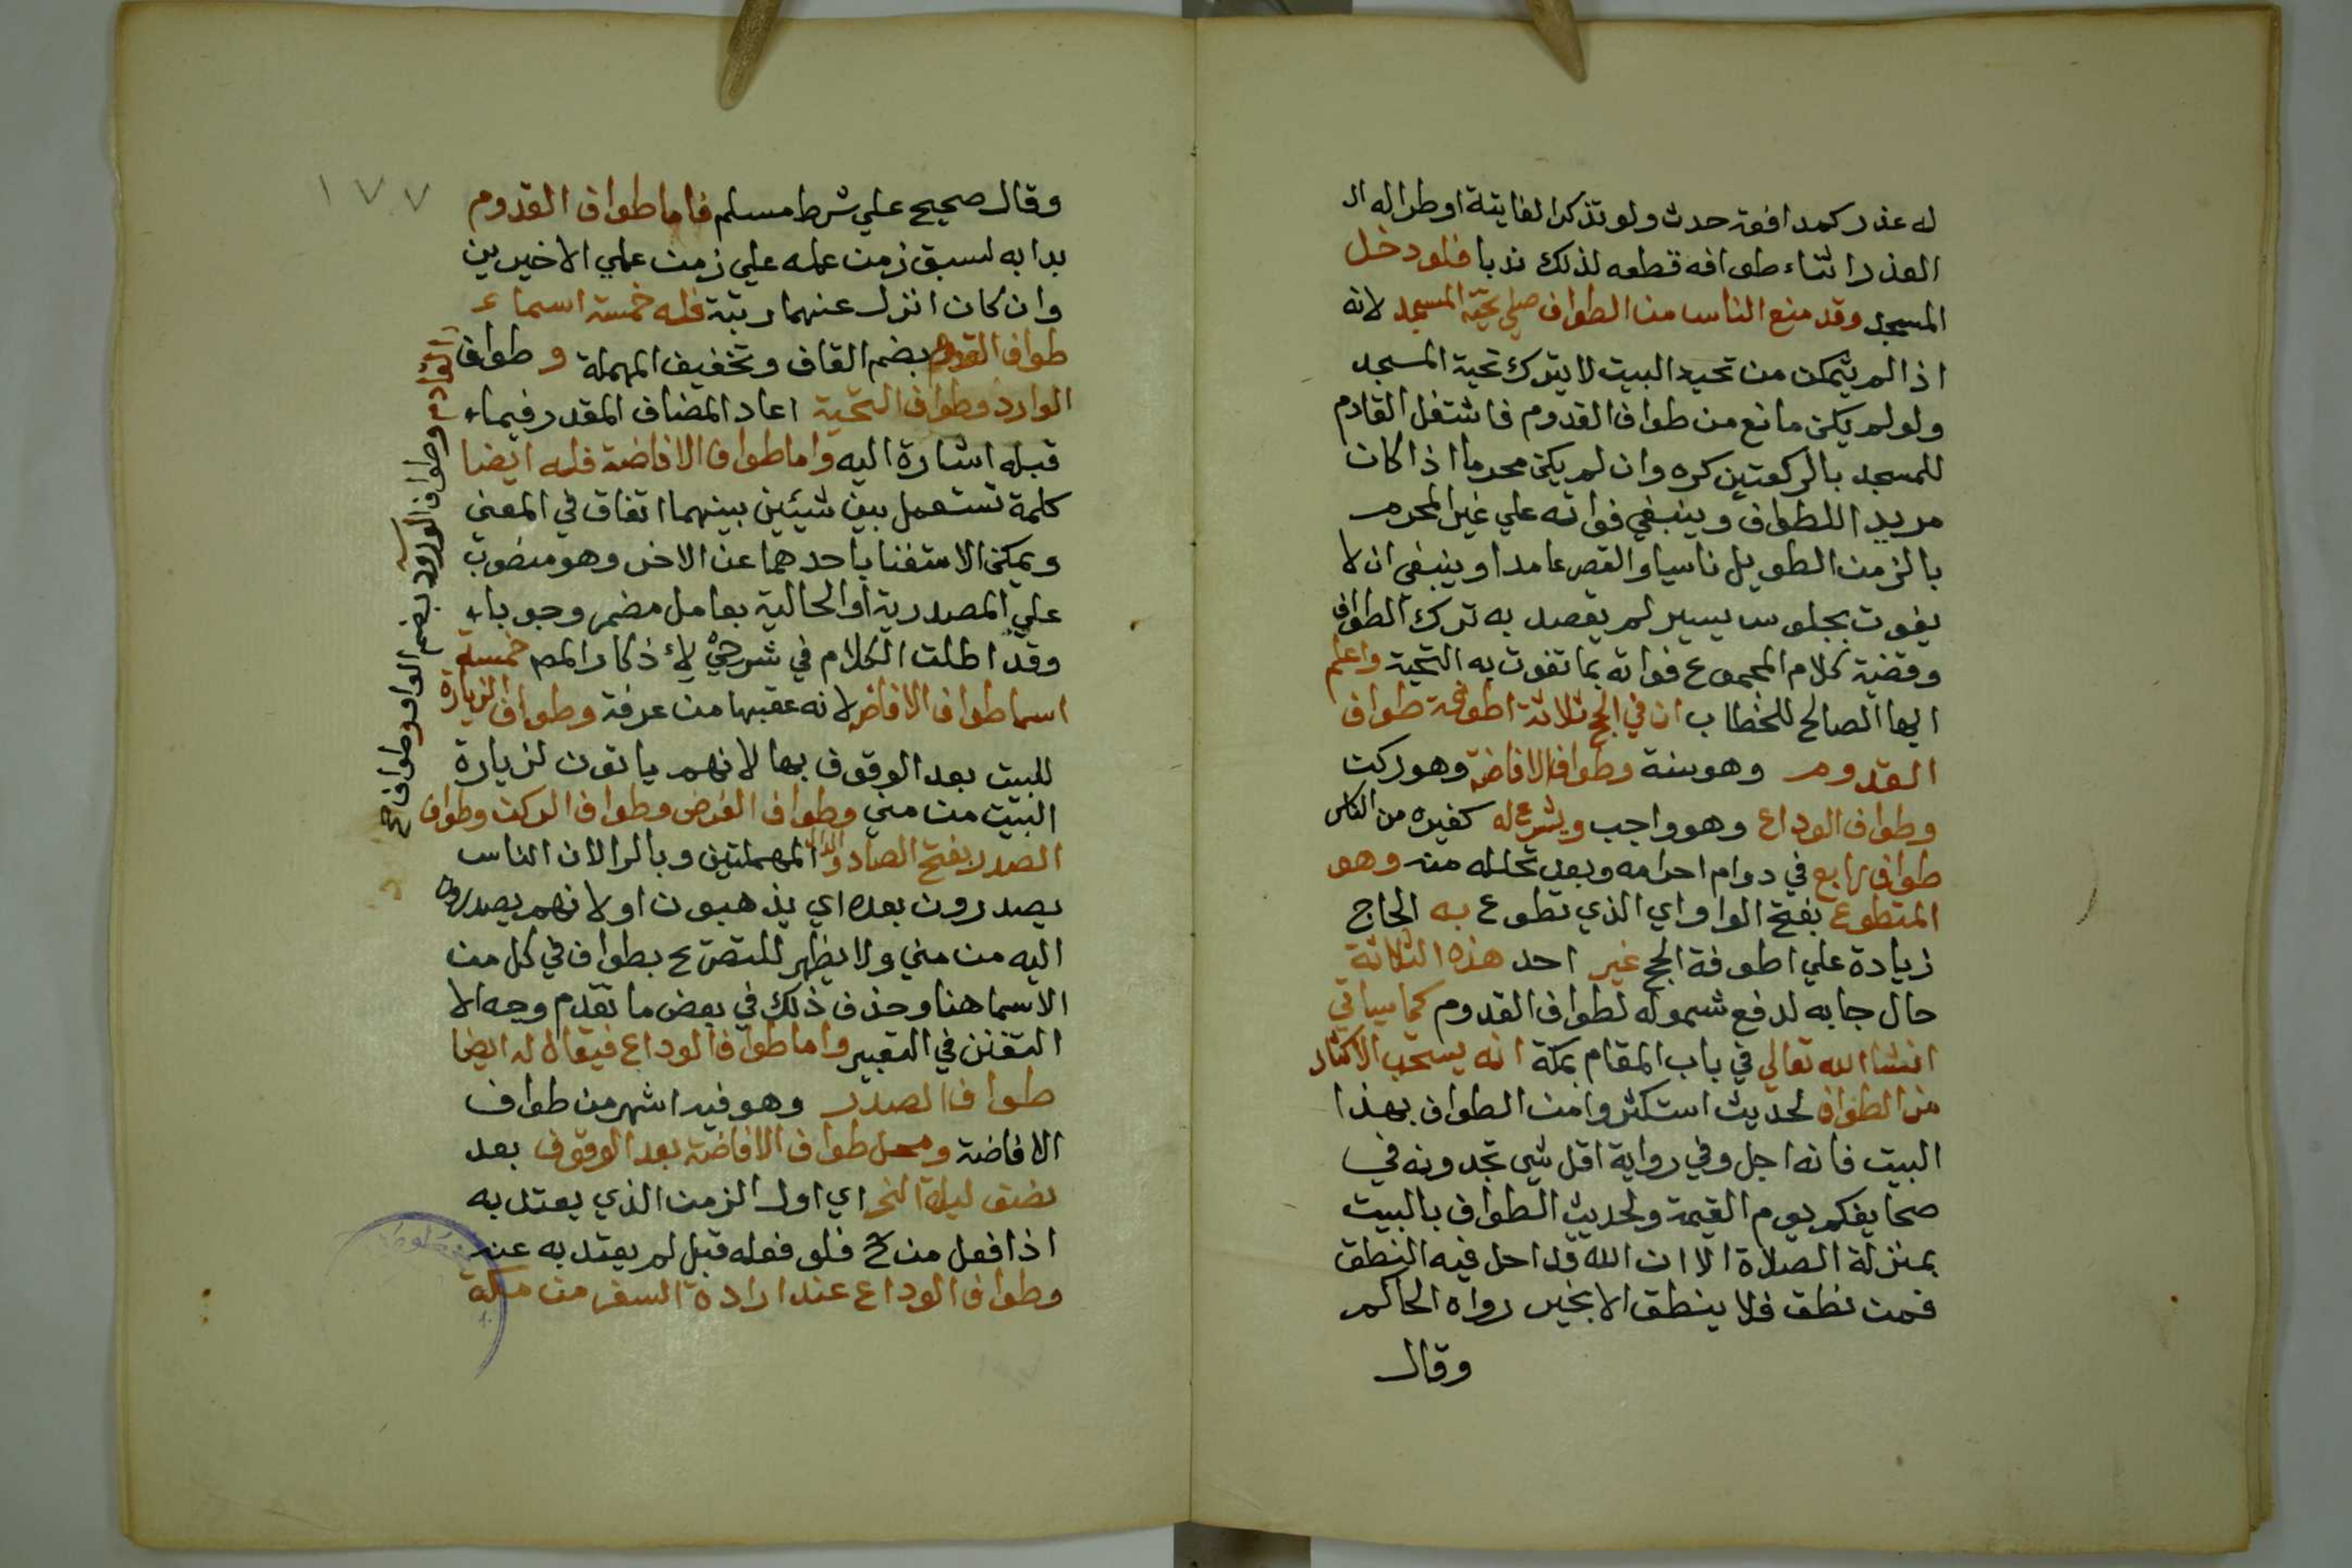 له عذر كمدافعة حدث ولو تذكر الفايتة او طرا له ال
العذر اثناء طوافه قطعه لذلك ندبا فلو دخل
المسجد وقد منع الناس من الطواف صلي تحية المسجد لانه
اذا لم يتمكن من تحية البيت لا يترك تحية المسجد
ولو لم يكن مانع من طواف القدوم فاشتغل القادم
للمسجد بالركعتين كره وان لم يكن محرما اذا كان
مريدا للطواف وينبغي فواته علي غير المحرم
بالزمن الطويل ناسيا والقصر عامدا وينبغي ان لا
يفوت بجلوس يسير لم يقصد به ترك الطواف
وقضية كلام المجموع فواته بما تفوت به التحية واعلم
ايها الصالح للخطاب ان في الحج ثلاثة اطوفة طواف
القدوم وهو سنة وطواف الافاضة وهو ركن
وطواف الوداع وهو واجب ويشرع له كغيره من الناس
طواف رابع في دوام احرامه وبعد تحلله منه وهو
المتطوع بفتح الواو اي الذي تطوع به الحاج
زيادة علي اطوفة الحج غير احد هذه الثلاثة
حال جا به لدفع شموله لطواف القدوم كما سياتي
انشا الله تعالي في باب المقام بمكة انه يستحب الاكثار
من الطواف لحديث استكثروا من الطواف بهذا
البيت فانه اجل وفي رواية اقل شي تجدونه في
صحايفكم يوم القيمة ولحديث الطواف بالبيت
بمنزلة الصلاة الا ان الله قد احل فيه النطق
فمن نطق فلا ينطق الا بخير رواه الحاكم
وقال
١٧٧
وقال صحيح علي شرط مسلم فاما طواف القدوم
بدا به لسبق زمن عمله علي زمن عملي الاخيرين
وان كان انزل عنهما رتبة فله خمسة اسماء
طواف القدوم بضم القاف وتخفيف المهملة و طواف
الوارد وطواف التحية اعاد المضاف المقدر فيما
قبله اشارة اليه واما طواف الافاضة فله ايضا
كلمة تستعمل بين شيئين بينهما اتفاق في المعني
ويمكن الاستغنا باحدهما عن الاخر وهو منصوب
علي المصدرية او الحالية بعامل مضمر وجوبا
وقد اطلت الكلام في شرحي لاذكار المص خمسة
اسما طواف الافاضة لانه عقبها من عرفة وطواف الزيارة
للبيت بعد الوقوف بها لانهم ياتون لزيارة
البيت من مني وطواف الفرض وطواف الركن وطواف
الصدر بفتح الصاد والدال المهملتين وبالرا لان الناس
يصدرون بعده اي يذهبون او لانهم يصدرون
اليه من مني ولا يظهر للتصريح بطواف في كل من
الاسما هنا وحذف ذلك في بعض ما تقدم وجه الا
التفنن في التعبير واما طواف الوداع فيقال له ايضا
طواف الصدر وهو فيه اشهر من طواف
الافاضة ومحل طواف الافاضة بعد الوقوف بعد
نصف ليلة النحر اي اول الزمن الذي يعتد به
اذا فعل من ح فلو فعله قبل لم يعتد به عنه
وطواف الوداع عند ارادة السفر من مكة
القادم وطواف الورود بضم الواو وطواف